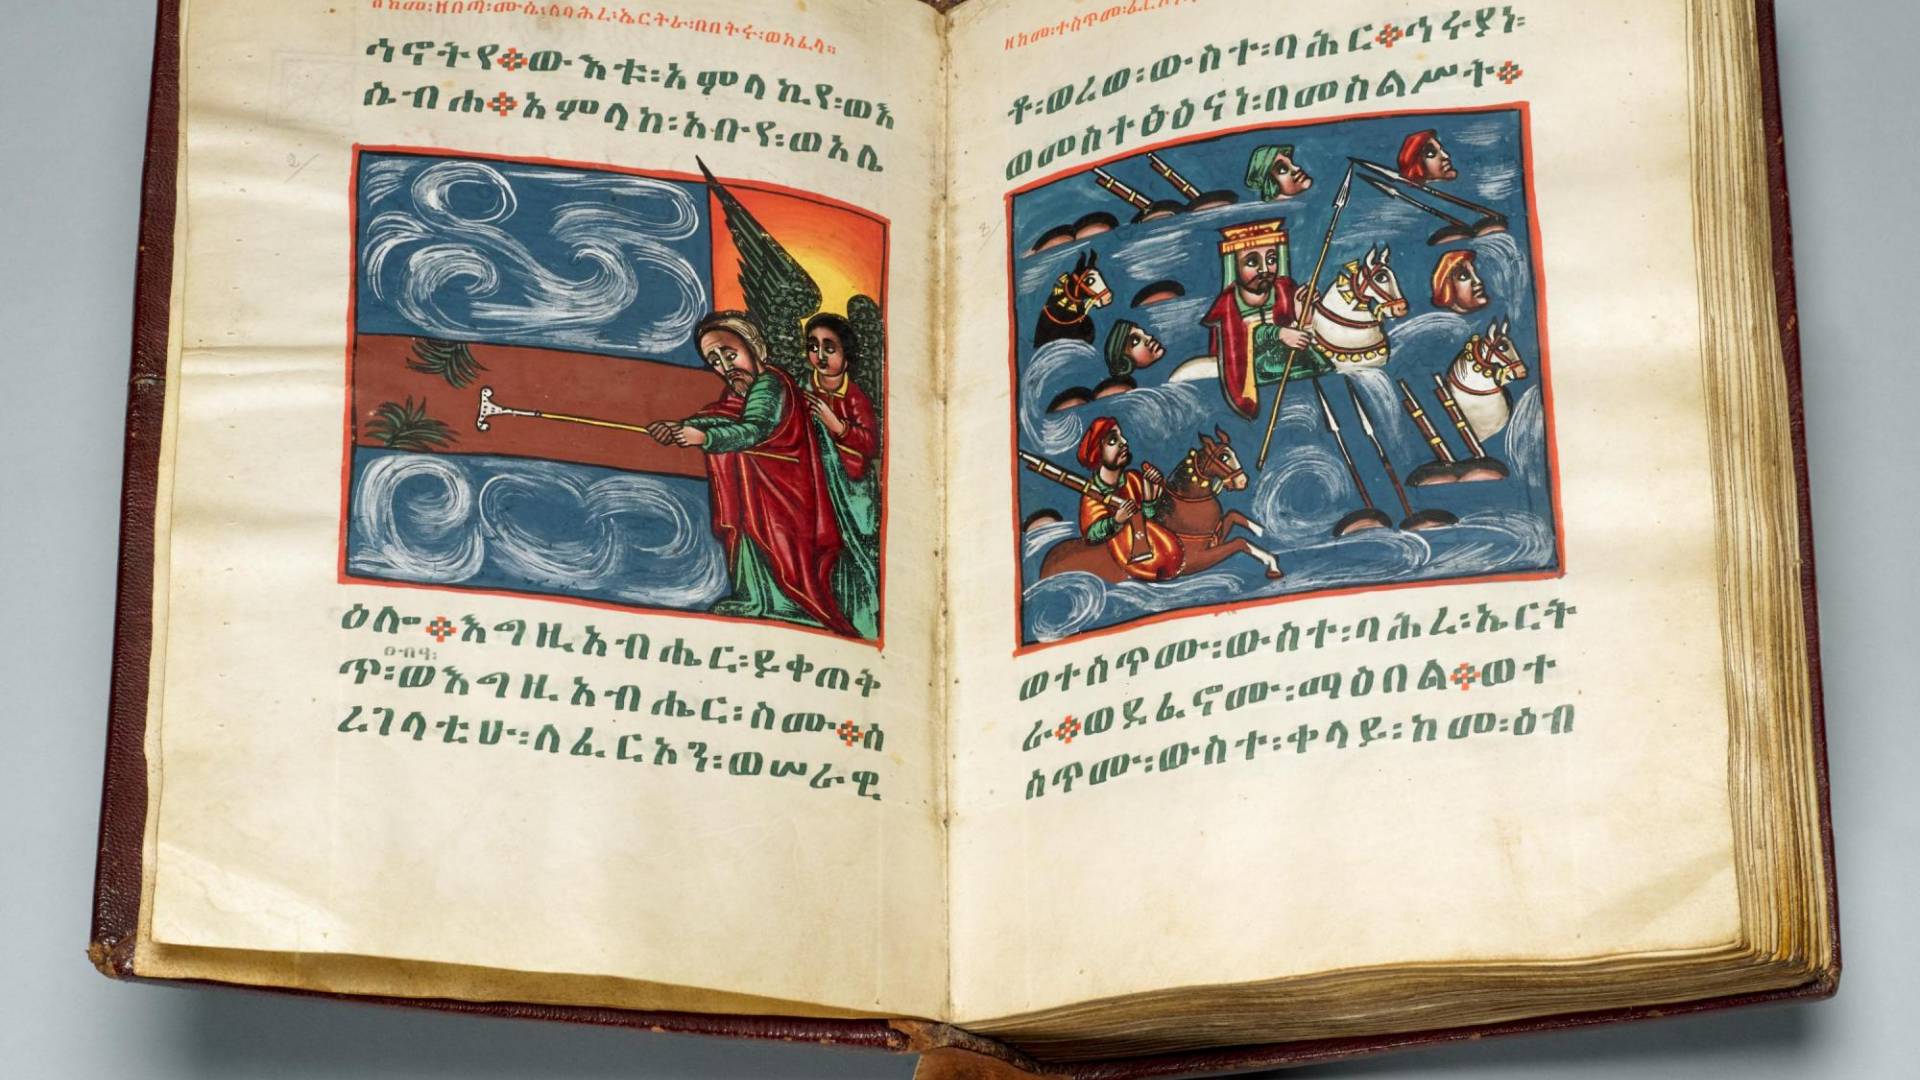 በከመ፡ዘበጣ፡ሙሴ፡ለባሕረ፡ኤርትራ፡በበትሩ፡ወከፈላ።
ኃኖትየ፨ውእቱ፡አምላኪየ፡ወእ
ሴብሖ፨አምላከ፡አቡየ፡ወአሌ
ዕሎ፨እግዚአብሔር፡ይቀጠቅ
ፀብዓ፡
ጥ፡ወእግዚአብሔር፡ስሙ፨ሰ
ረገላቲሁ፡ለፈርኦን፡ወሠራዊ
ዘከመ፡ተሰጥመ፡
ቶ፡ወረወ፡ውስተ፡ባሕር፨ኃሩያነ፡
ወመስተፅዕናነ፡በመስልሥት፨
ወተሰጥሙ፡ውስተ፡ባሕረ፡ኤርት
ራ፨ወደፈኖሙ፡ማዕበል፨ወተ
ሰጥሙ፡ውስተ፡ቀላይ፡ከመ፡ዕብ